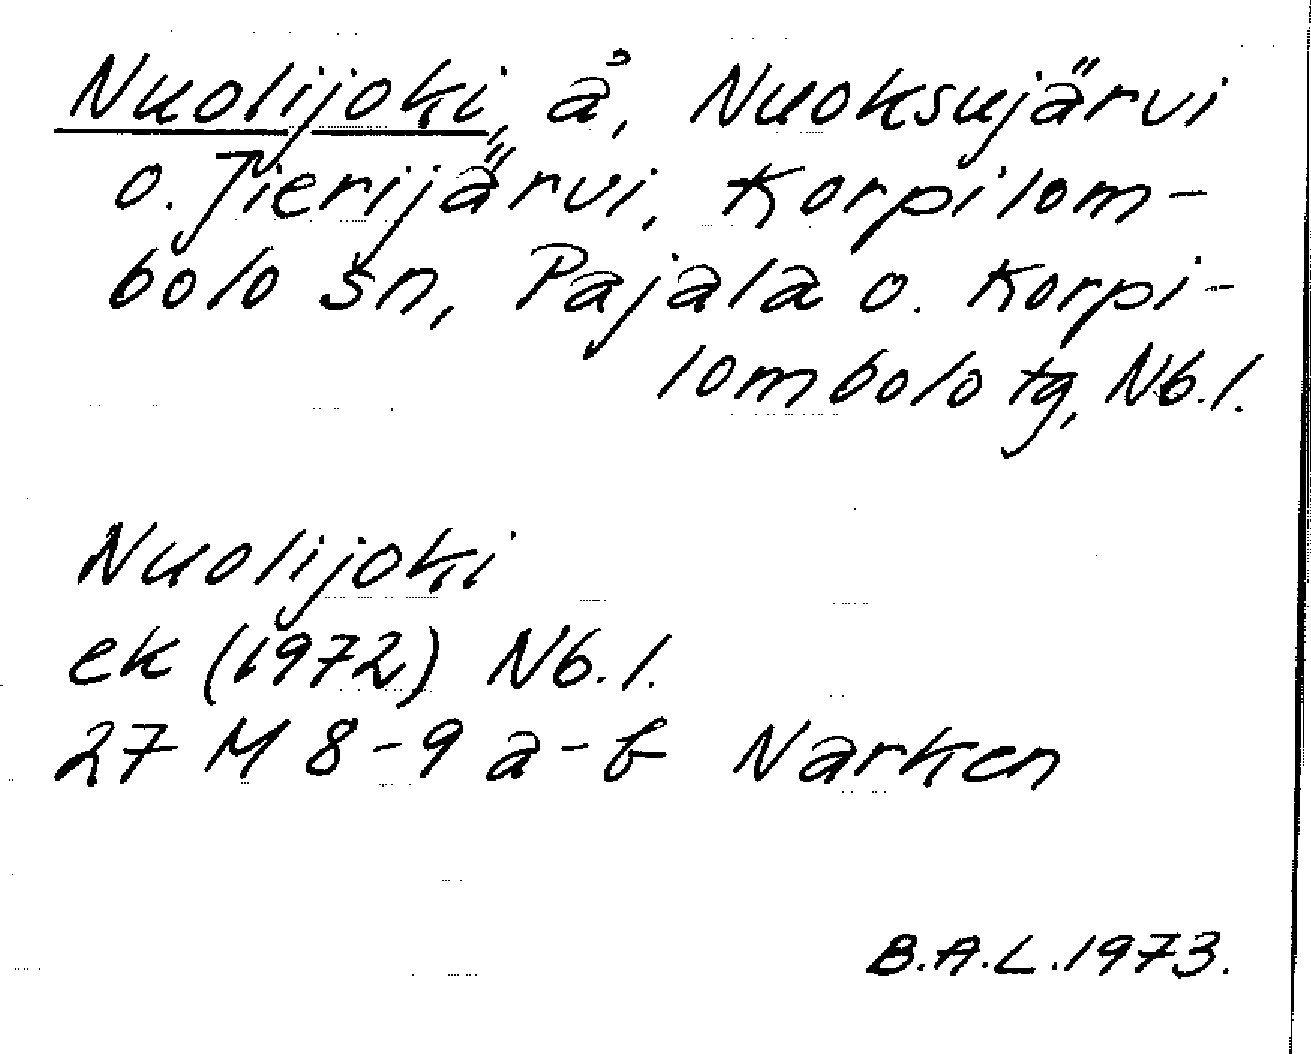 Nuolijoki, å, Nuoksujärvi
o. Jierijärvi, Korpilom-
bolo sn, Pajala o. Korpi-
lombolo tg, Nb.l.
Nuolijoki
ek (1972) Nb.l.
27 M 8-9 a-b Narken
B.A.L.1973.